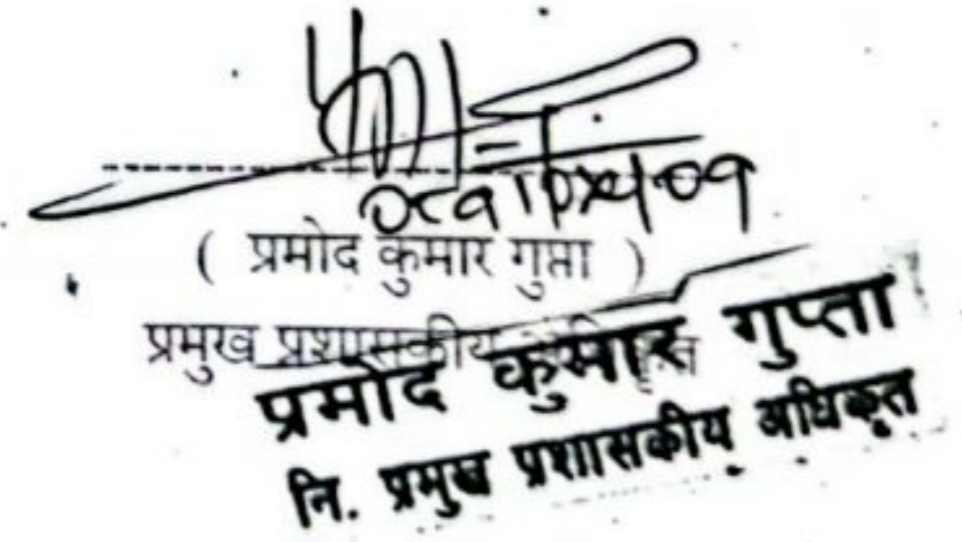 ( प्रमोद कुमार गुप्ता )
प्रमुख प्रशासकीय
प्रमोद कुमार गुप्ता
नि. प्रमुख प्रशासकीय अधिकृत